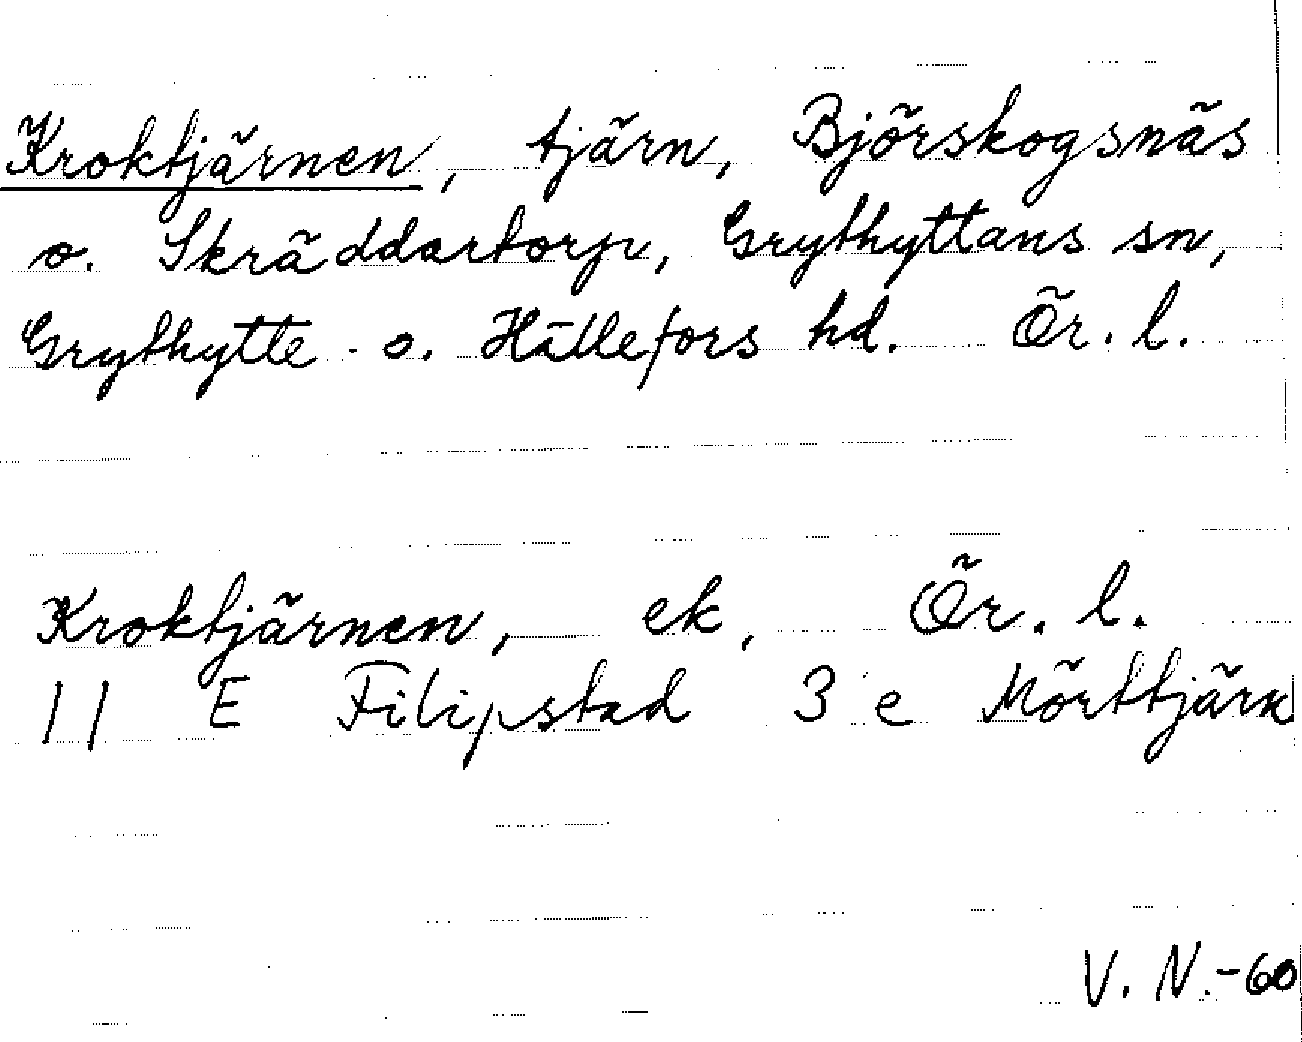 Kroktjärnen, tjärn, Björskogsnäs
o. Skräddartorp, Grythyttans sn,
Grythytte o. Hällefors hd. Ör. l.
Kroktjärnen, ek, Ör. l.
11 E Filipstad 3 e Mörttjärn
V. N. -60